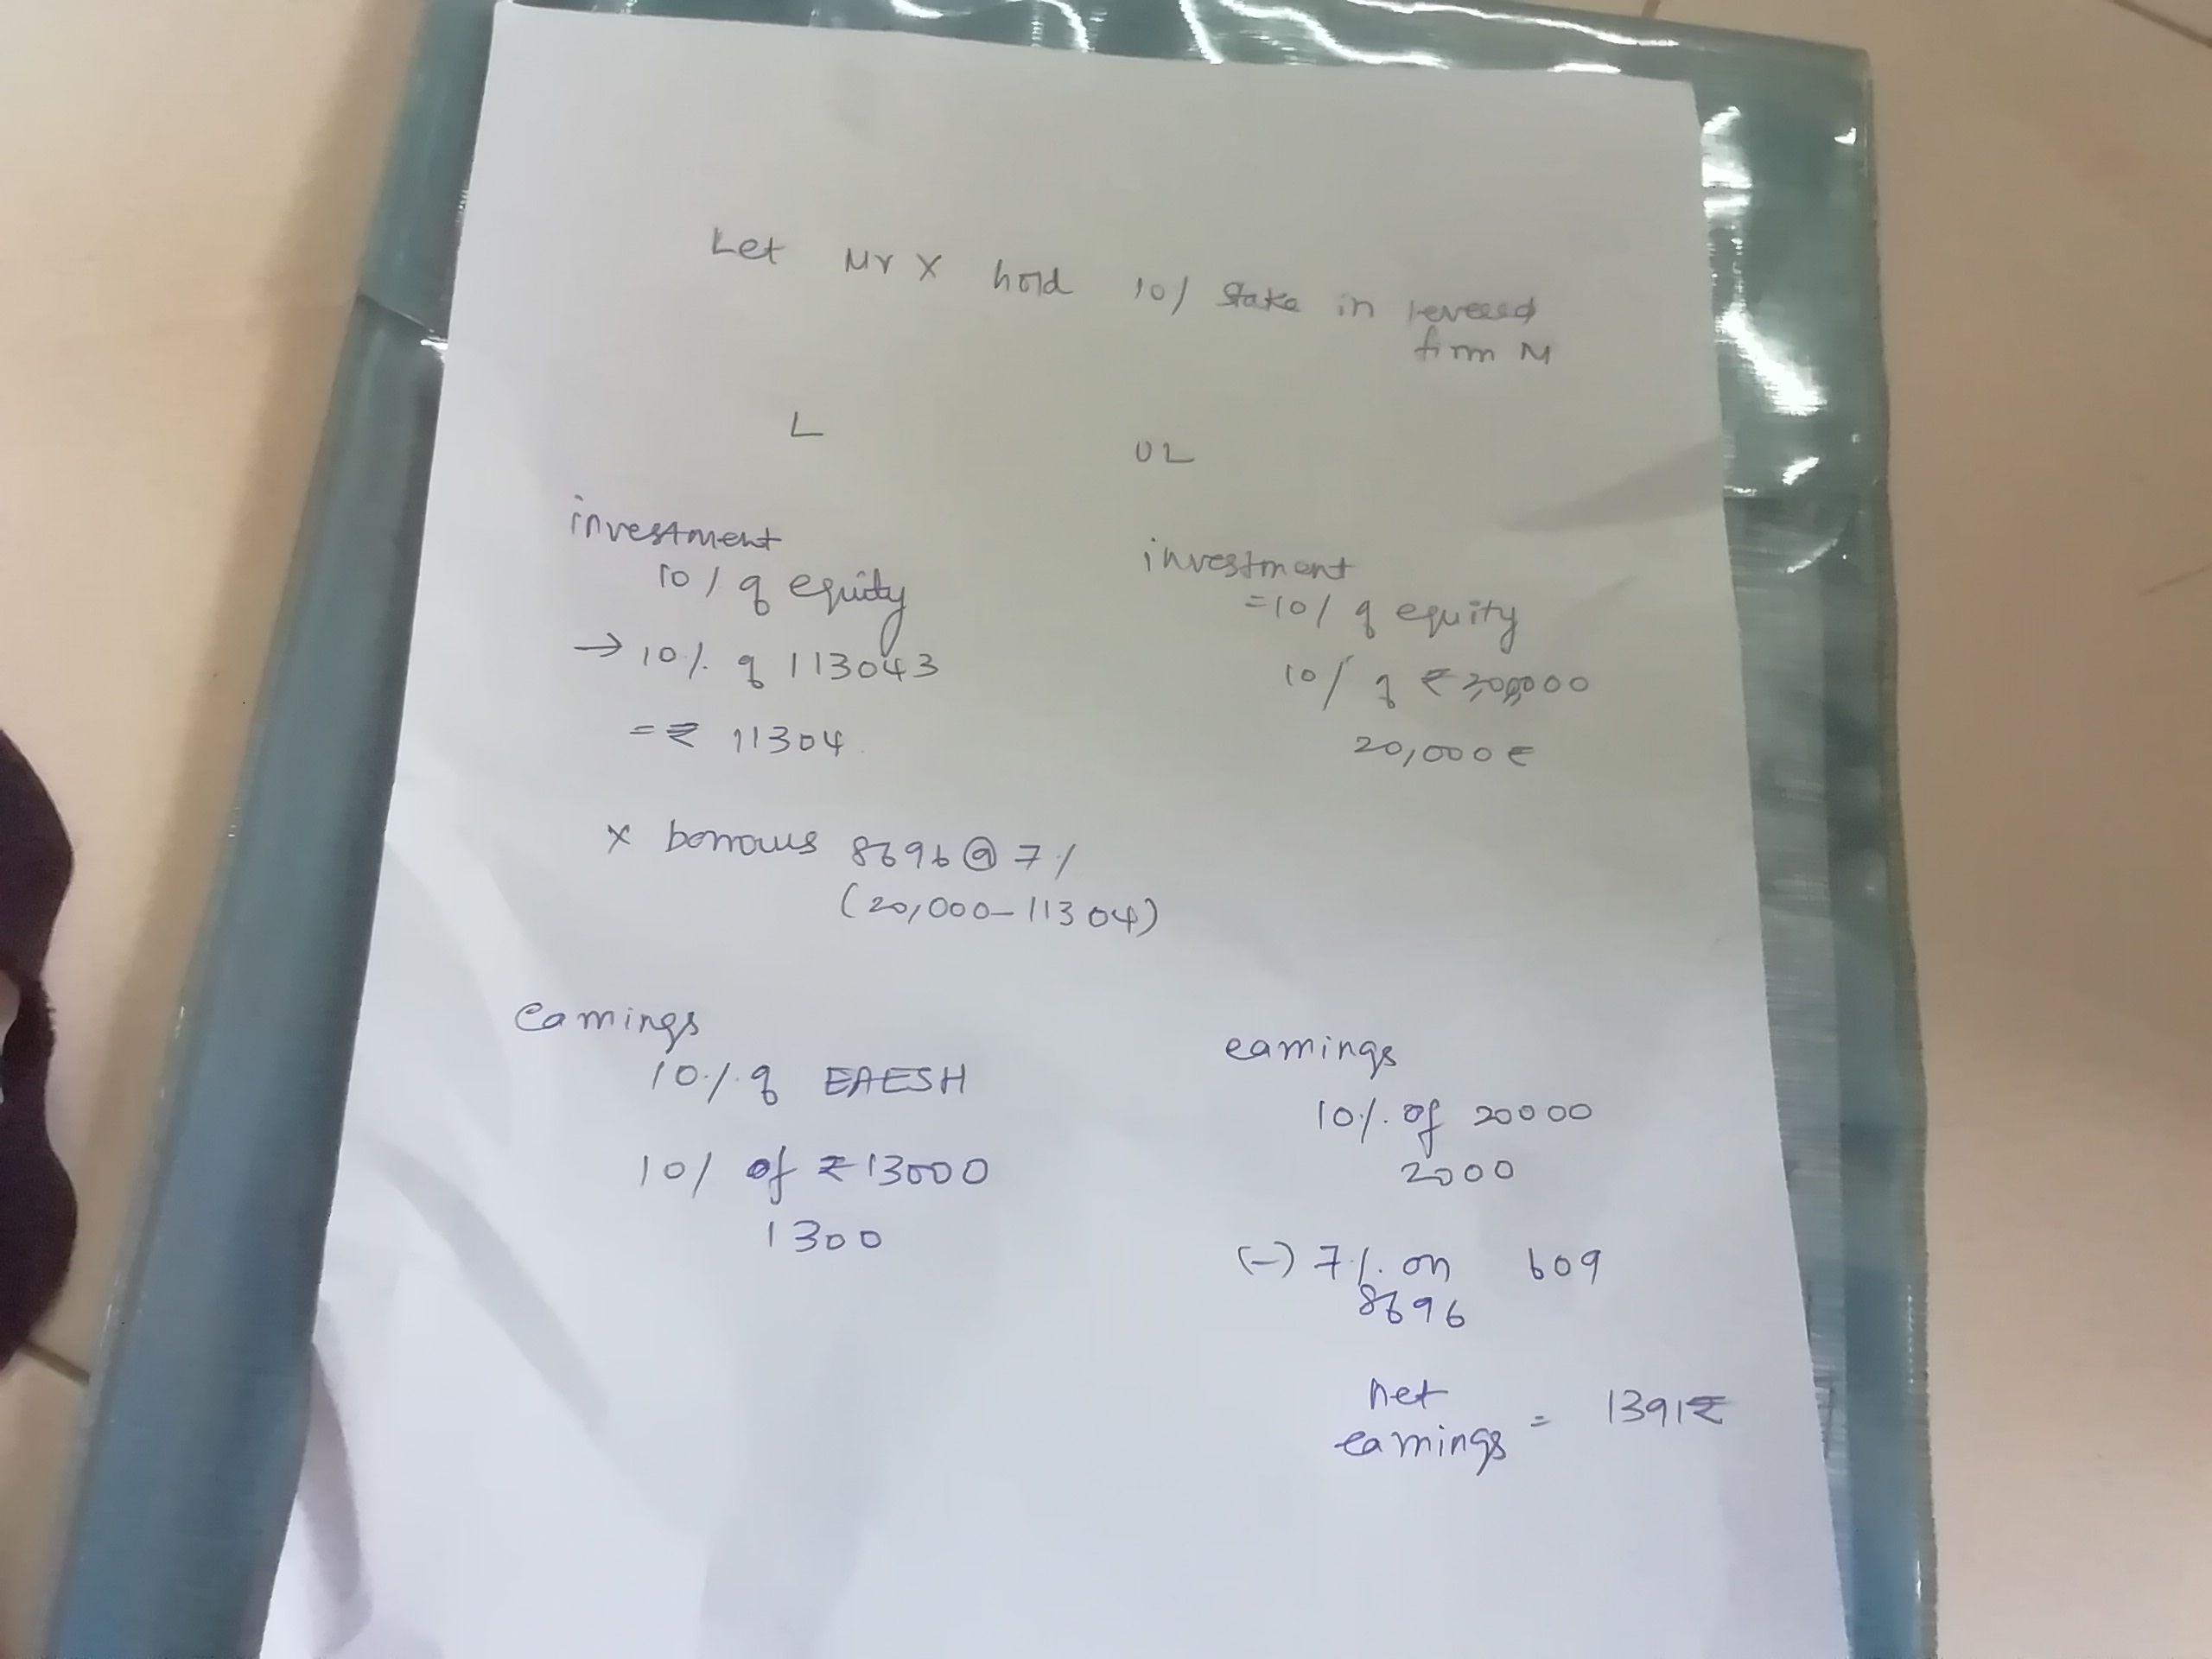 Let Mr X hold 10/ stake in
firm M
L
UL
investment
10/ of equity
→ 10% of 113043
= ₹ 11304
investment
= 10/ of equity
10/ of ₹
20,000 ₹
X borrows 8696 @ 7%
(20,000-11304)
earnings
10% of EAESH
10/ of ₹ 13000
1300
earnings
10% of 20000
2000
(-) 7% on 609
8696
net
earnings = 1391₹